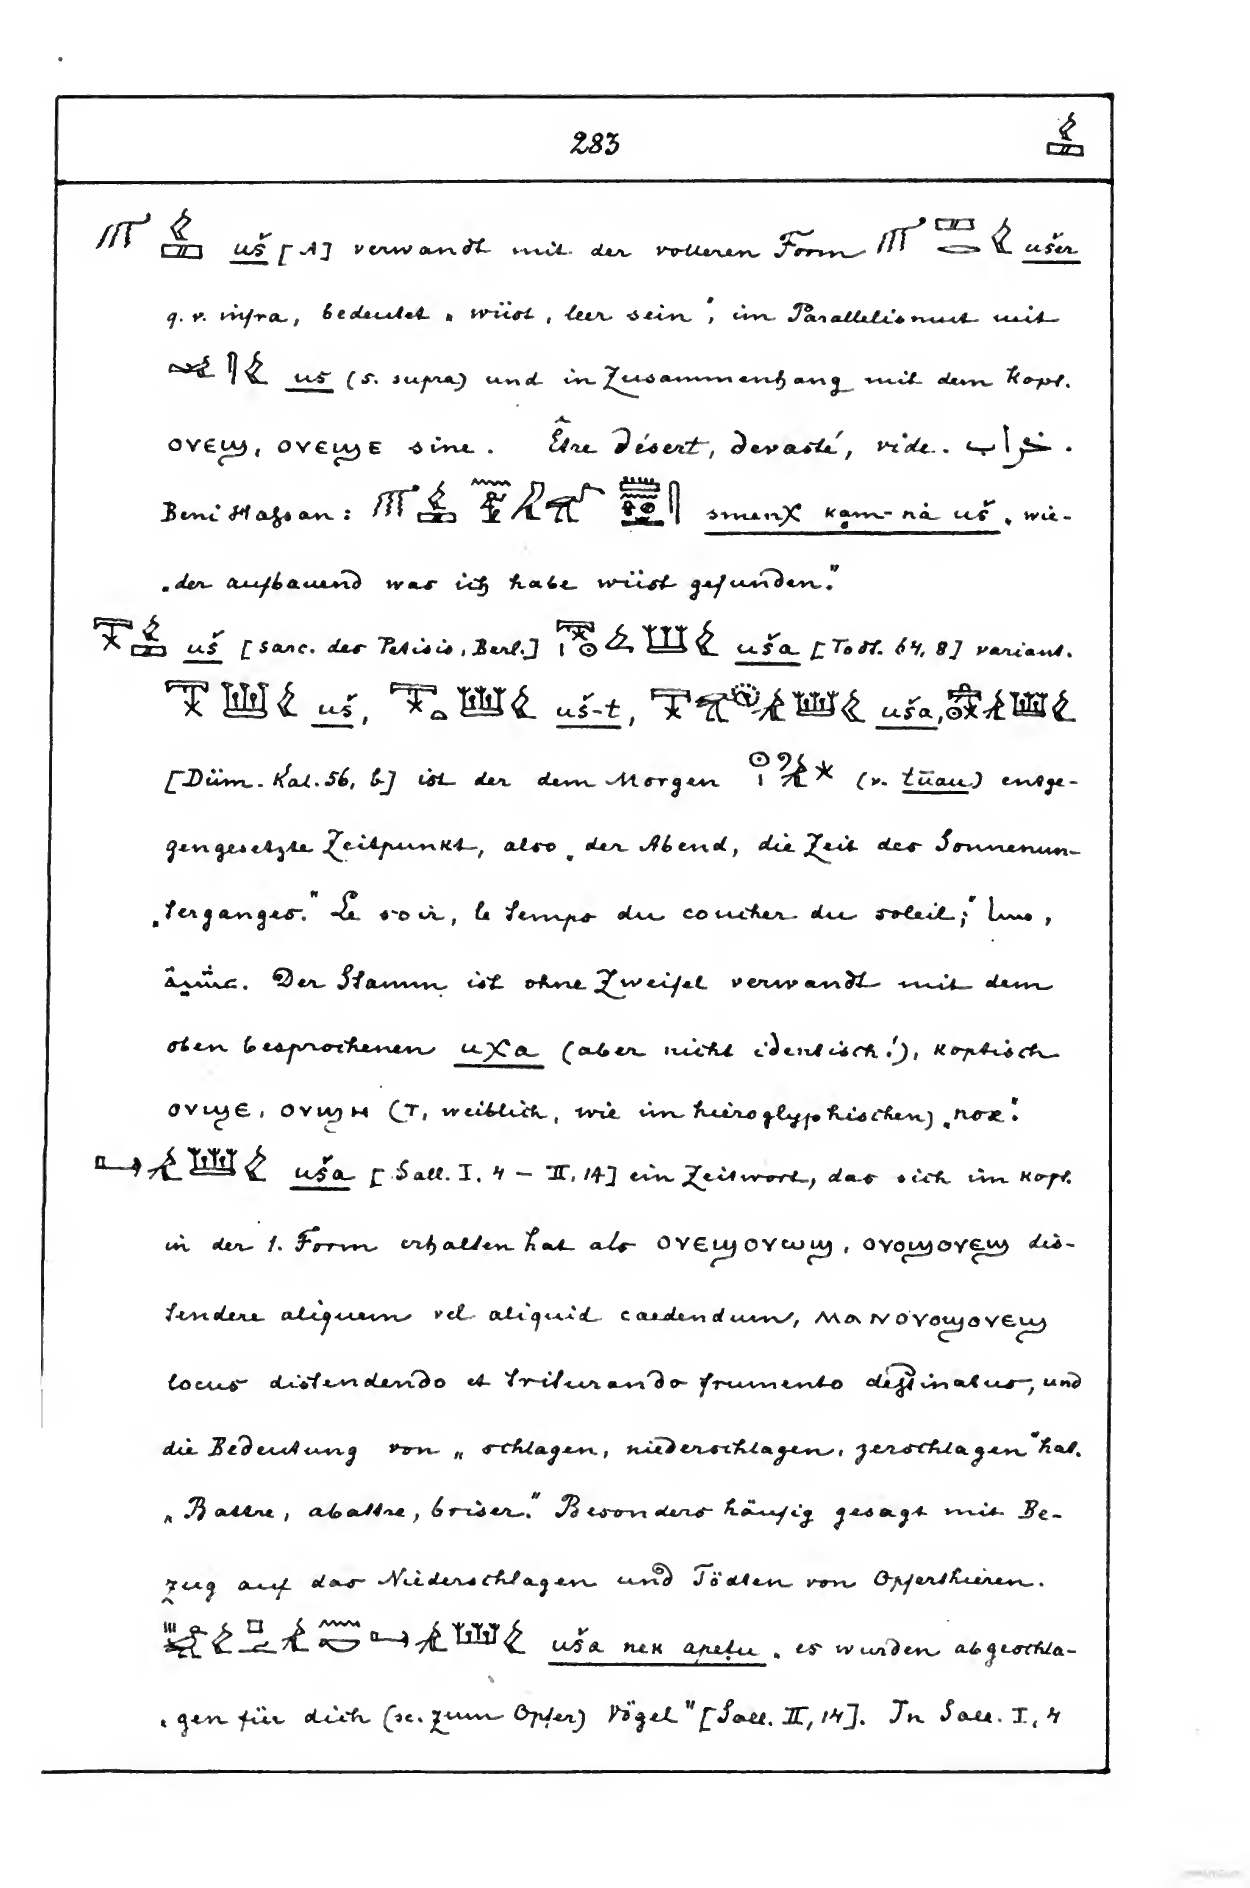 283
uš [A] verwandt mit der volleren Form ušer
q. v. infra, bedeutet „wüst, leer sein", im Parallelismus mit
us (s. supra) und in Zusammenhang mit dem kopt.
ⲟⲩⲉϣ, ⲟⲩⲉϣⲉ sine. Être désert, devasté, vide. خراب.
Beni Hassan: smenχ ḳam-nȧ uš „wie-
„der aufbauend was ich habe wüst gefunden."
uš [Sarc. des Petisis, Berl.] uša [Todt. 64, 8] variant.
uš, uš-t, uša,
[Düm. Kal. 56, b] ist der dem Morgen (v. tūau) entge-
gengesetzte Zeitpunkt, also „der Abend, die Zeit des Sonnenun-
„terganges." Le soir, le temps du coucher du soleil;" مساء,
Der Stamm ist ohne Zweifel verwandt mit dem
oben besprochenen uχa (aber nicht identisch!), koptisch
ⲟⲩϣⲉ, ⲟⲩϣⲏ (ⲧ, weiblich, wie im hieroglyphischen) „nox".
uša [Sall. I. 4 – II, 14] ein Zeitwort, das sich im kopt.
in der 1. Form erhalten hat als ⲟⲩⲉϣⲟⲩⲱϣ, ⲟⲩⲟϣⲟⲩⲉϣ dis-
tendere aliquem vel aliquid caedendum, ⲙⲁⲛⲟⲩⲟϣⲟⲩⲉϣ
locus distendendo et triturando frumento destinatus, und
die Bedeutung von „schlagen, niederschlagen, zerschlagen" hat.
„Battre, abattre, briser." Besonders häufig gesagt mit Be-
zug auf das Niederschlagen und Tödten von Opferthieren.
uša nek apeṭu „es wurden abgeschla-
„gen für dich (sc. zum Opfer) Vögel" [Sall. II, 14]. In Sall. I, 4